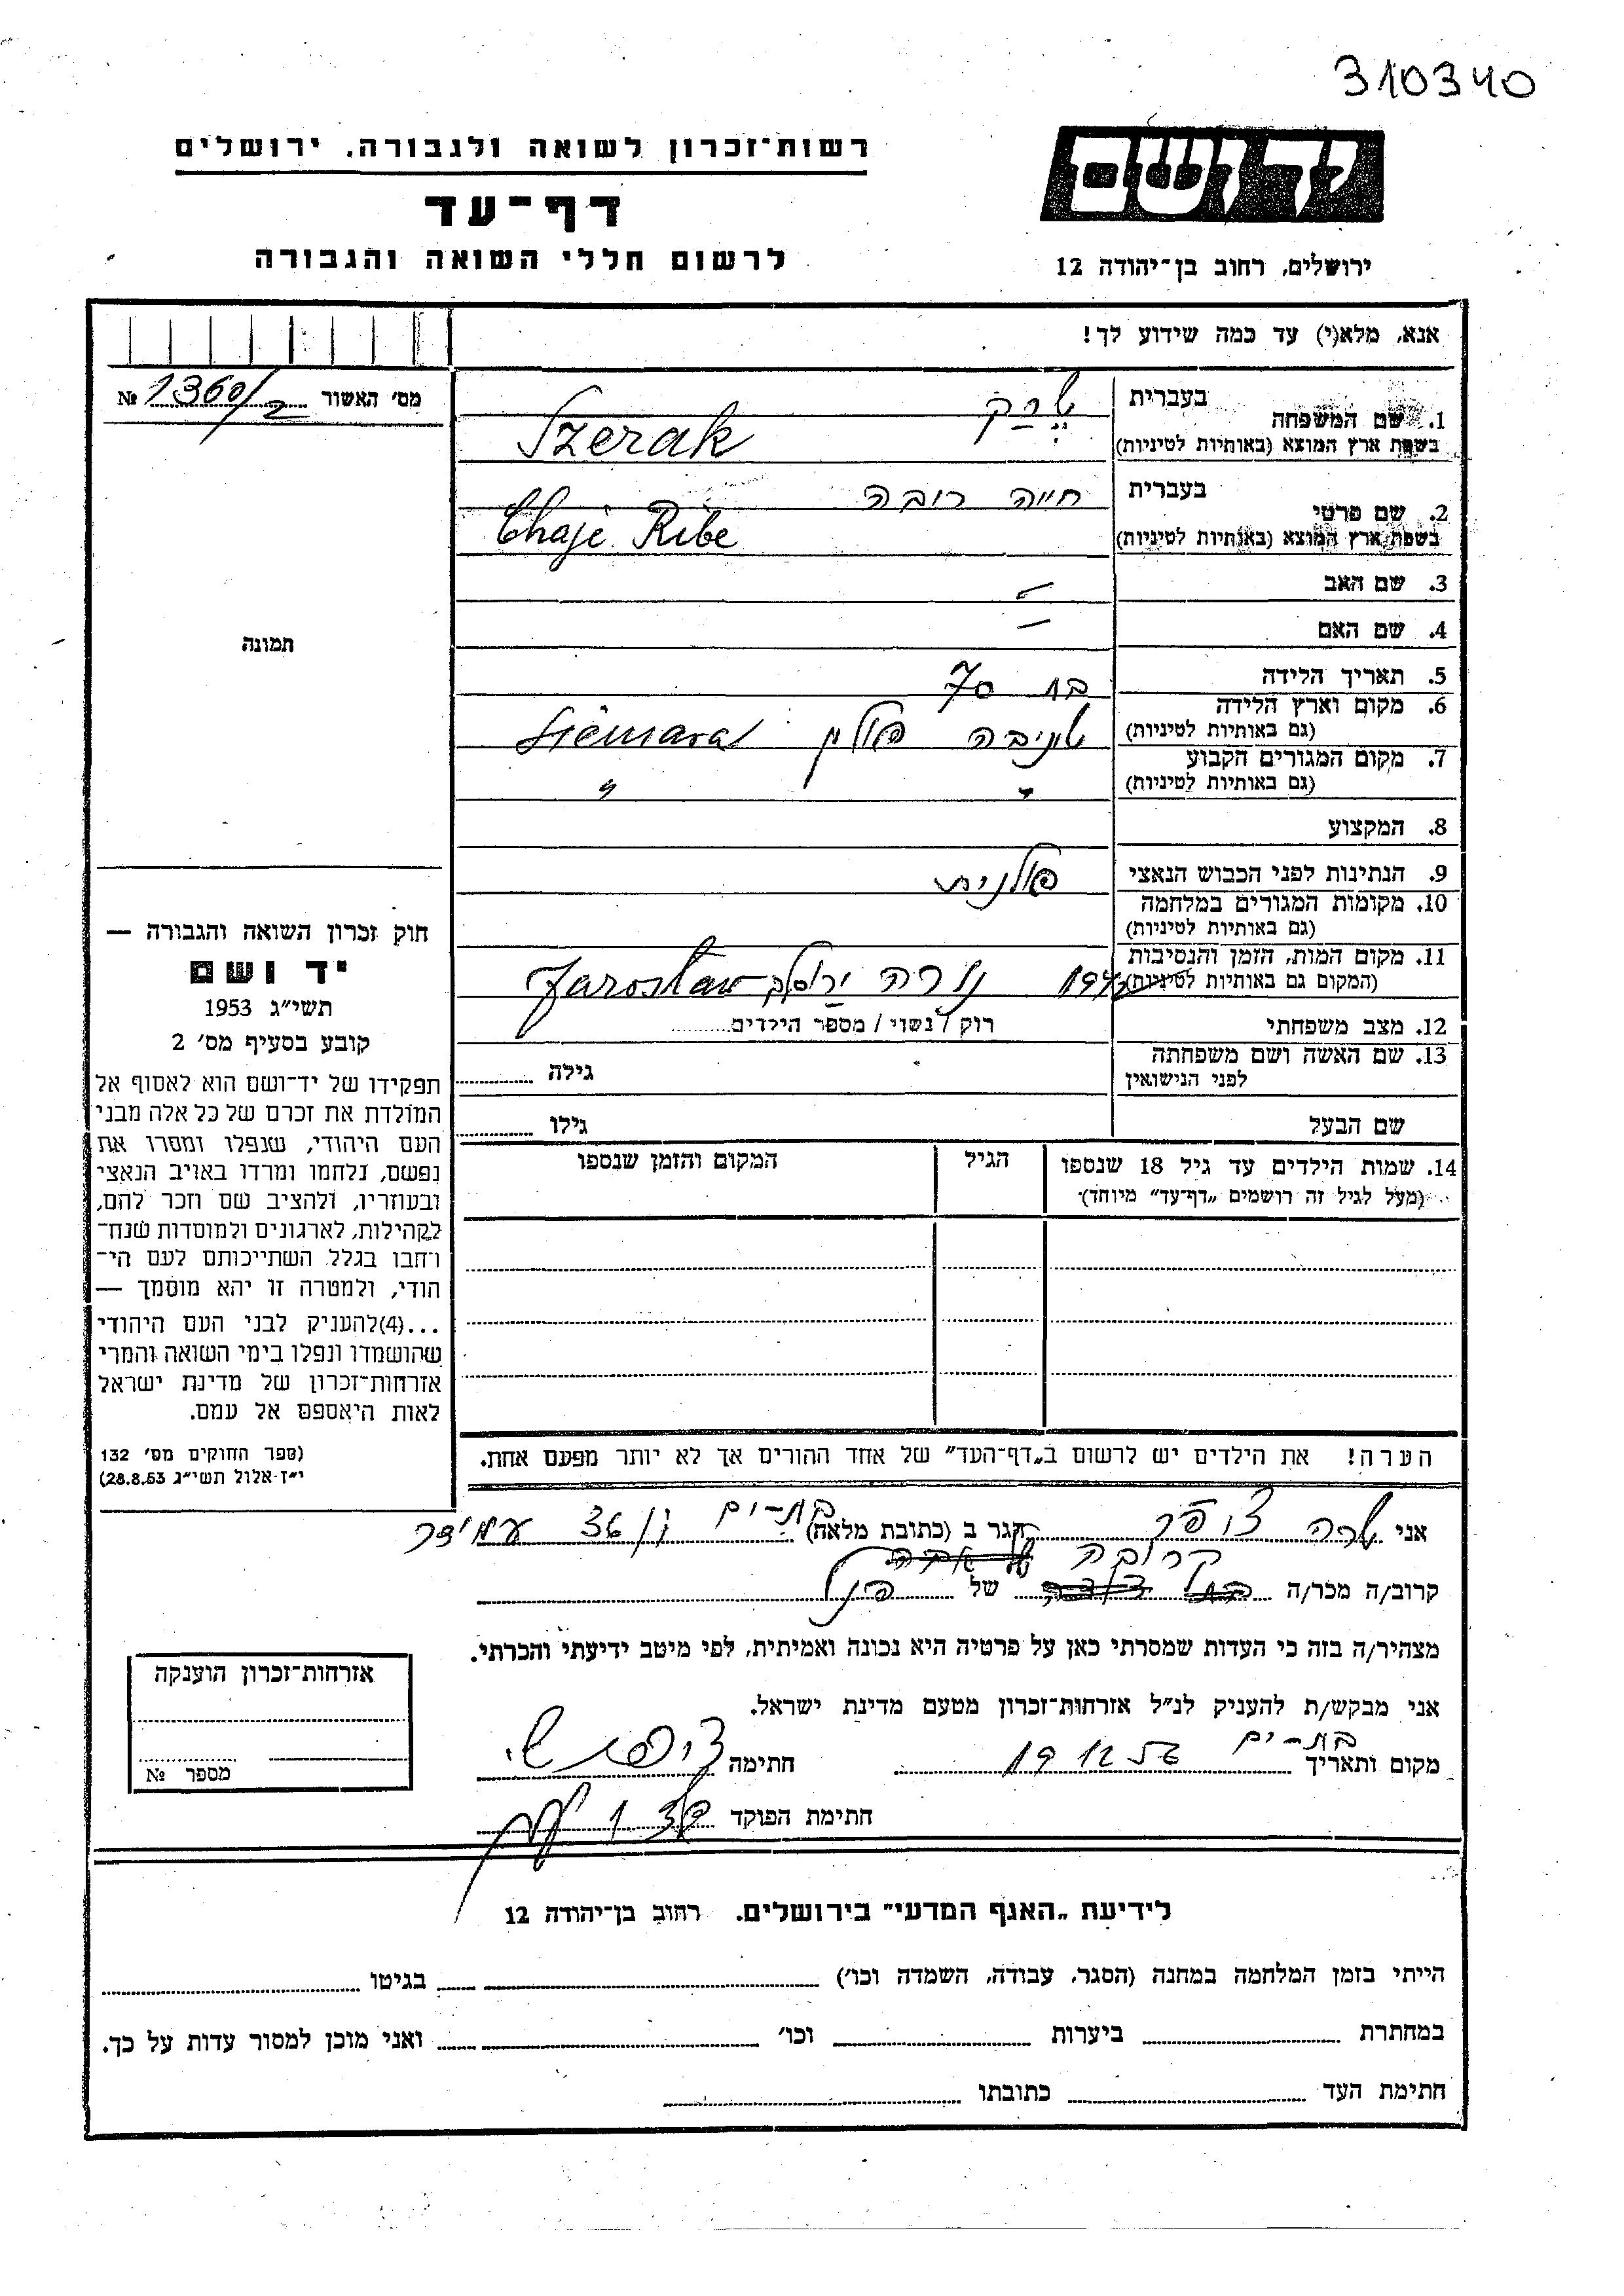 310340
ידושם
ירושלים, רחוב בן־יהודה 12
רשות־זכרון לשואה ולגבורה, ירושלים
דף־עד
לרשום חללי השואה והגבורה
אנא, מלא(י) עד כמה שידוע לך!
מס׳ האשור 1360/2 №
תמונה
1. שם המשפחה
בעברית שרק
בשפת ארץ המוצא (באותיות לטיניות) Szerak
2. שם פרטי
בעברית חייה ריבה
בשפת ארץ המוצא (באותיות לטיניות) Chaje Ribe
3. שם האב —
4. שם האם —
5. תאריך הלידה בת 70
6. מקום וארץ הלידה
(גם באותיות לטיניות) פולין
7. מקום המגורים הקבוע
(גם באותיות לטיניות) " "
8. המקצוע
9. הנתינות לפני הכבוש הנאצי פולנית
10. מקומות המגורים במלחמה
(גם באותיות לטיניות)
11. מקום המות, הזמן והנסיבות
(המקום גם באותיות לטיניות) נורה ירוסלב Jarosław
12. מצב משפחתי רוק / נשוי / מספר הילדים
13. שם האשה ושם משפחתה
לפני הנישואין גילה
שם הבעל גילו
14. שמות הילדים עד גיל 18 שנספו
(מעל לגיל זה רושמים „דף־עד״ מיוחד)
הגיל
המקום והזמן שנספו
הערה! את הילדים יש לרשום ב„דף־העד״ של אחד ההורים אך לא יותר מפעם אחת.
חוק זכרון השואה והגבורה —
יד ושם
תשי״ג 1953
קובע בסעיף מס׳ 2
תפקידו של יד־ושם הוא לאסוף אל
המולדת את זכרם של כל אלה מבני
העם היהודי, שנפלו ומסרו את
נפשם, נלחמו ומרדו באויב הנאצי
ובעוזריו, ולהציב שם וזכר להם,
לקהילות, לארגונים ולמוסדות שנח־
רחבו בגלל השתייכותם לעם הי־
הודי, ולמטרה זו יהא מוסמך —
...(4)להעניק לבני העם היהודי
שהושמדו ונפלו בימי השואה והמרי
אזרחות־זכרון של מדינת ישראל
לאות היאספם אל עמם.
(ספר החוקים מס׳ 132
י״ז אלול תשי״ג 28.8.53)
אני שרה צופר הגר ב (כתובת מלאה) בת־ים עמידר
קרוב/ה מכר/ה קרובה של הנ״ל
מצהיר/ה בזה כי העדות שמסרתי כאן על פרטיה היא נכונה ואמיתית, לפי מיטב ידיעתי והכרתי.
אני מבקש/ת להעניק לנ״ל אזרחות־זכרון מטעם מדינת ישראל.
מקום ותאריך בת־ים 19 12 56 חתימה
חתימת הפוקד
אזרחות־זכרון הוענקה
מספר №
לידיעת „האגף המדעי״ בירושלים. רחוב בן־יהודה 12
הייתי בזמן המלחמה במחנה (הסגר, עבודה, השמדה וכו׳) בגיטו
במחתרת ביערות וכו׳ ואני מוכן למסור עדות על כך.
חתימת העד כתובתו